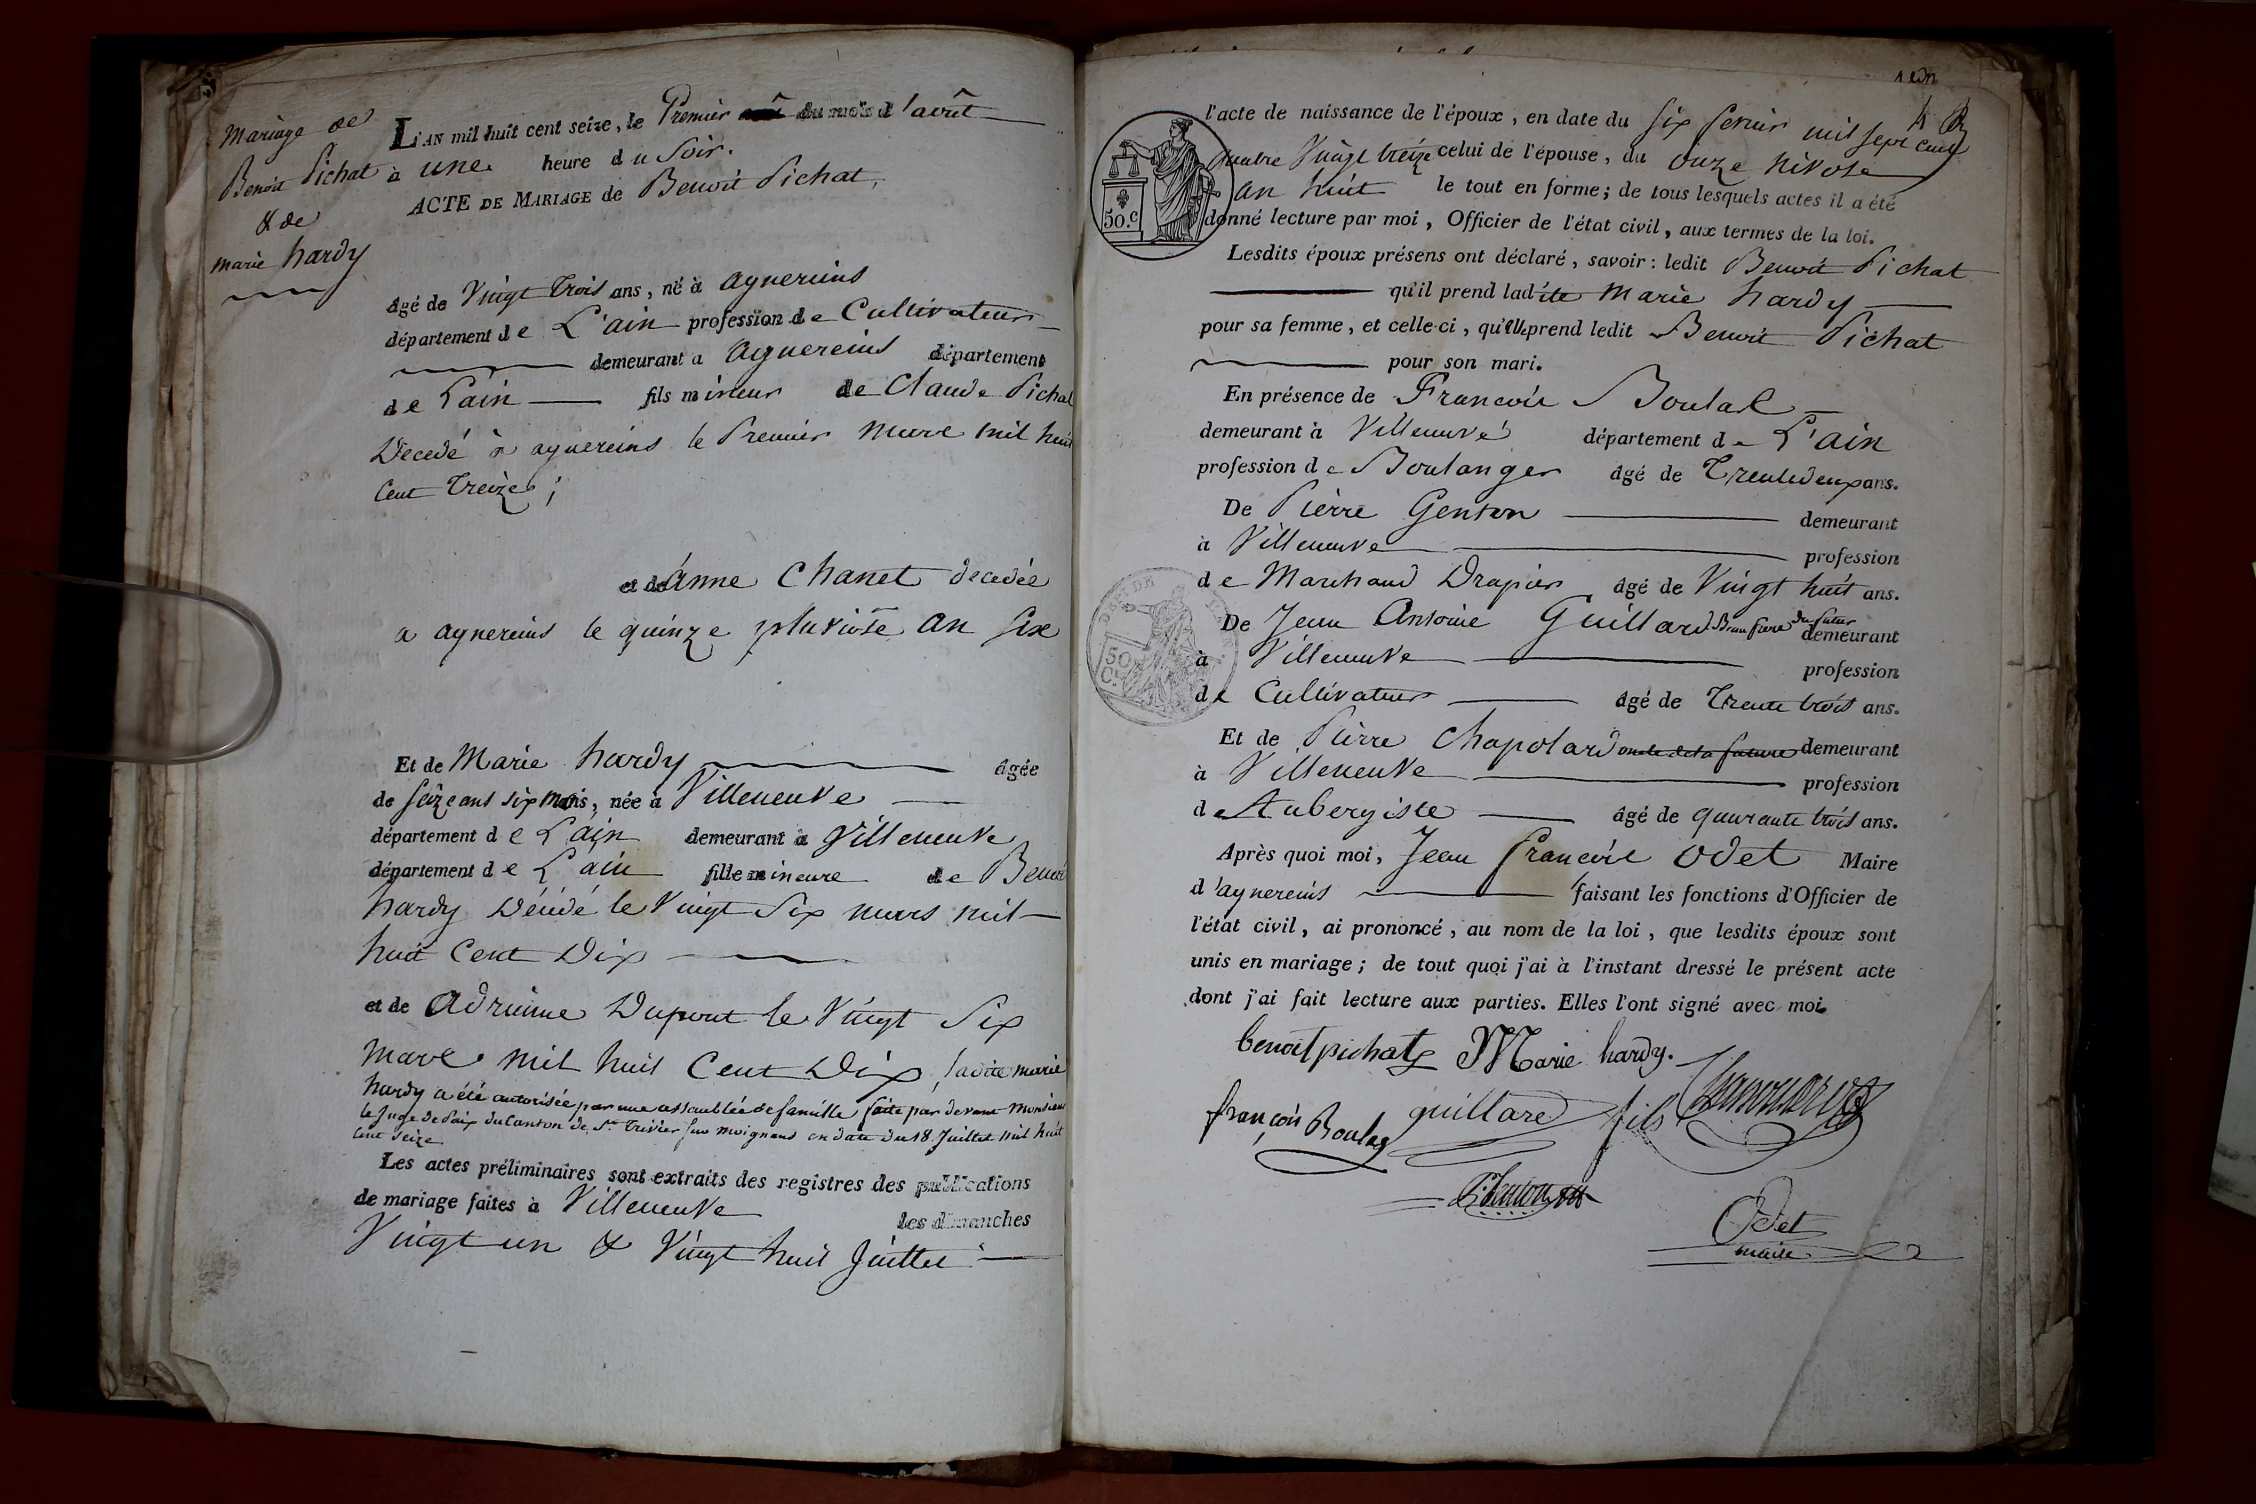 Mariage de
Benoit Pichat
& de
marie hardy
L'AN mil huit cent seize, le Premier du mois d'août
à une heure du Soir.
ACTE DE MARIAGE de Benoit Pichat,
âgé de Vingt trois ans, né à aynereins
département de L'ain profession de Cultivateur
demeurant a aynereins département
de L'ain fils mineur de Claude Pichat
Decedé à aynereins le Premier Mars mil huit
Cent Treize;
et de anne Chanet decedée
a aynereins le quinze pluviôse an Six
Et de Marie hardy âgée
de Seize ans six mois, née à Villeneuve
département de L'ain demeurant à Villeneuve
département de L'ain fille mineure de Benoit
hardy Décédé le Vingt Six mars mil
huit Cent Dix
et de adrienne Dupont le Vingt Six
Mars mil huit Cent Dix, ladite marie
hardy a été autorisée par une assemblée de famille faite par devant Monsieur
le Juge de Paix du Canton de St Trivier sur moignans en date du 18 Juillet mil huit
Cent Seize
Les actes préliminaires sont extraits des registres des publications
de mariage faites à Villeneuve les dimanches
Vingt un & Vingt huit Juillet
l'acte de naissance de l'époux, en date du Six fevrier mil sept Cent
quatre Vingt treize celui de l'épouse, du onze Nivose
an huit le tout en forme; de tous lesquels actes il a été
donné lecture par moi, Officier de l'état civil, aux termes de la loi.
50.c
Lesdits époux présens ont déclaré, savoir: ledit Benoit Pichat
qu'il prend ladite Marie hardy
pour sa femme, et celle-ci, qu'elle prend ledit Benoit Pichat
pour son mari.
En présence de Francois Boulas
demeurant à Villeneuve département de L'ain
profession de Boulanger âgé de Trente deux ans.
De Pierre Genton demeurant
à Villeneuve profession
de Marchand Drapier âgé de Vingt huit ans.
De Jean Antoine Guillard Beau frere du futur demeurant
à Villeneuve profession
50 C.
de Cultivateur âgé de Trente trois ans.
Et de Pierre Chapolard oncle de la future demeurant
à Villeneuve profession
d Aubergiste âgé de quarante trois ans.
Après quoi moi, Jean francois Odet Maire
d'aynereins faisant les fonctions d'Officier de
l'état civil, ai prononcé, au nom de la loi, que lesdits époux sont
unis en mariage; de tout quoi j'ai à l'instant dressé le présent acte
dont j'ai fait lecture aux parties. Elles l'ont signé avec moi.
benoit pichat Marie hardy.
françois Boulas guillard fils
Odet
maire